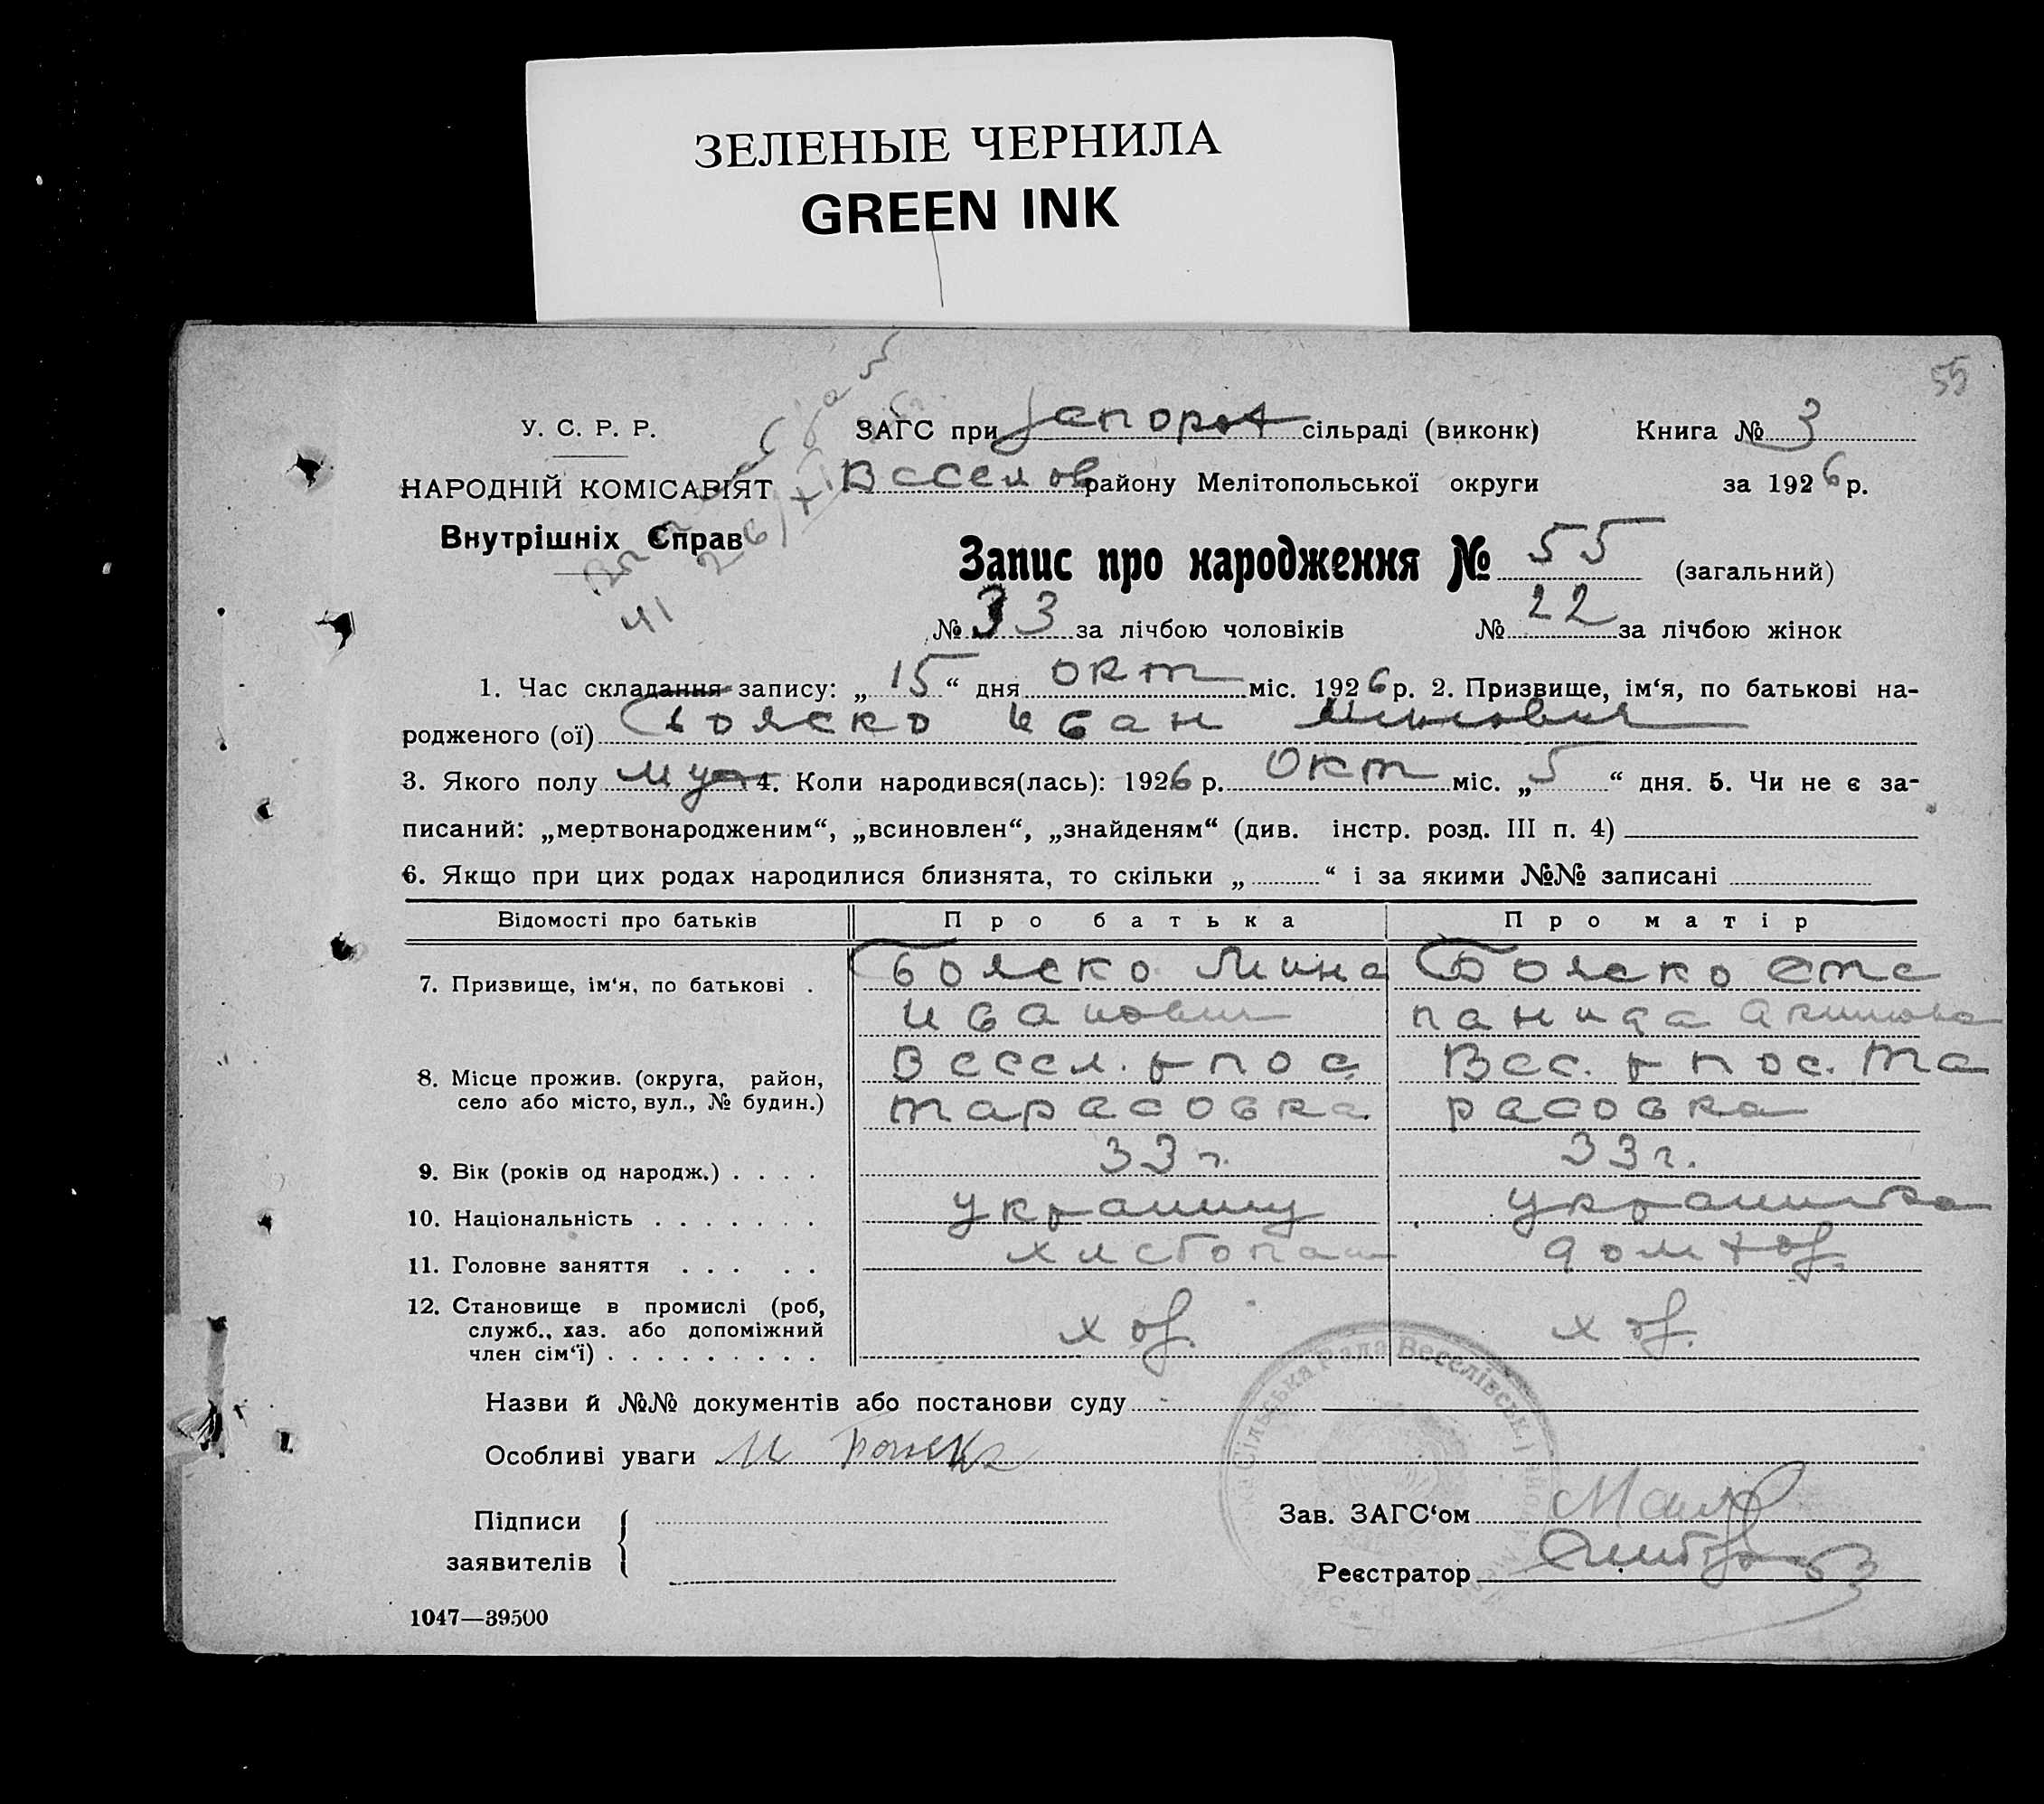 ЗЕЛЕНЫЕ ЧЕРНИЛА
GREEN INK
55
У. С. Р. Р.
ЗАГС при Запорож сільраді (виконк) Книга № 3
НАРОДНІЙ КОМІСАРІЯТ
Веселов району Мелітопольської округи за 1926 р.
Внутрішніх Справ
Запис про народження № 55 (загальний)
41
№ 33 за лічбою чоловіків № 22 за лічбою жінок
1. Час складання запису: „15“ дня окт міс. 1926 р. 2. Призвище, ім‘я, по батькові на-
родженого (ої) Бояско Иван Минович
3. Якого полу муж 4. Коли народився(лась): 1926 р. Окт міс. „5“ дня. 5. Чи не є за-
писаний: „мертвонародженим“, „всиновлен“, „знайденям“ (див. інстр. розд. III п. 4)
6. Якщо при цих родах народилися близнята, то скільки „ “ і за якими №№ записані
Відомості про батьків Про батька Про матір
7. Призвище, ім‘я, по батькові . Бояско Мина Бояско Сте
Иванович панида Акимовна
8. Місце прожив. (округа, район, Весел. р пос Вес. р пос. Та
село або місто, вул., № будин.) Тарасовка расовка
9. Вік (років од народж.) . . . . 33 г. 33 г.
10. Національність . . . . . . . украинц украинка
11. Головне заняття . . . . . хлебопаш дом хоз.
12. Становище в промислі (роб,
служб., хаз. або допоміжний хоз. хоз.
член сім‘ї) . . . . . . . . .
Назви й №№ документів або постанови суду
Особливі уваги М
Підписи
заявителів
Зав. ЗАГС‘ом
Реєстратор
Сільська Рада Веселівськ.
1047—39500